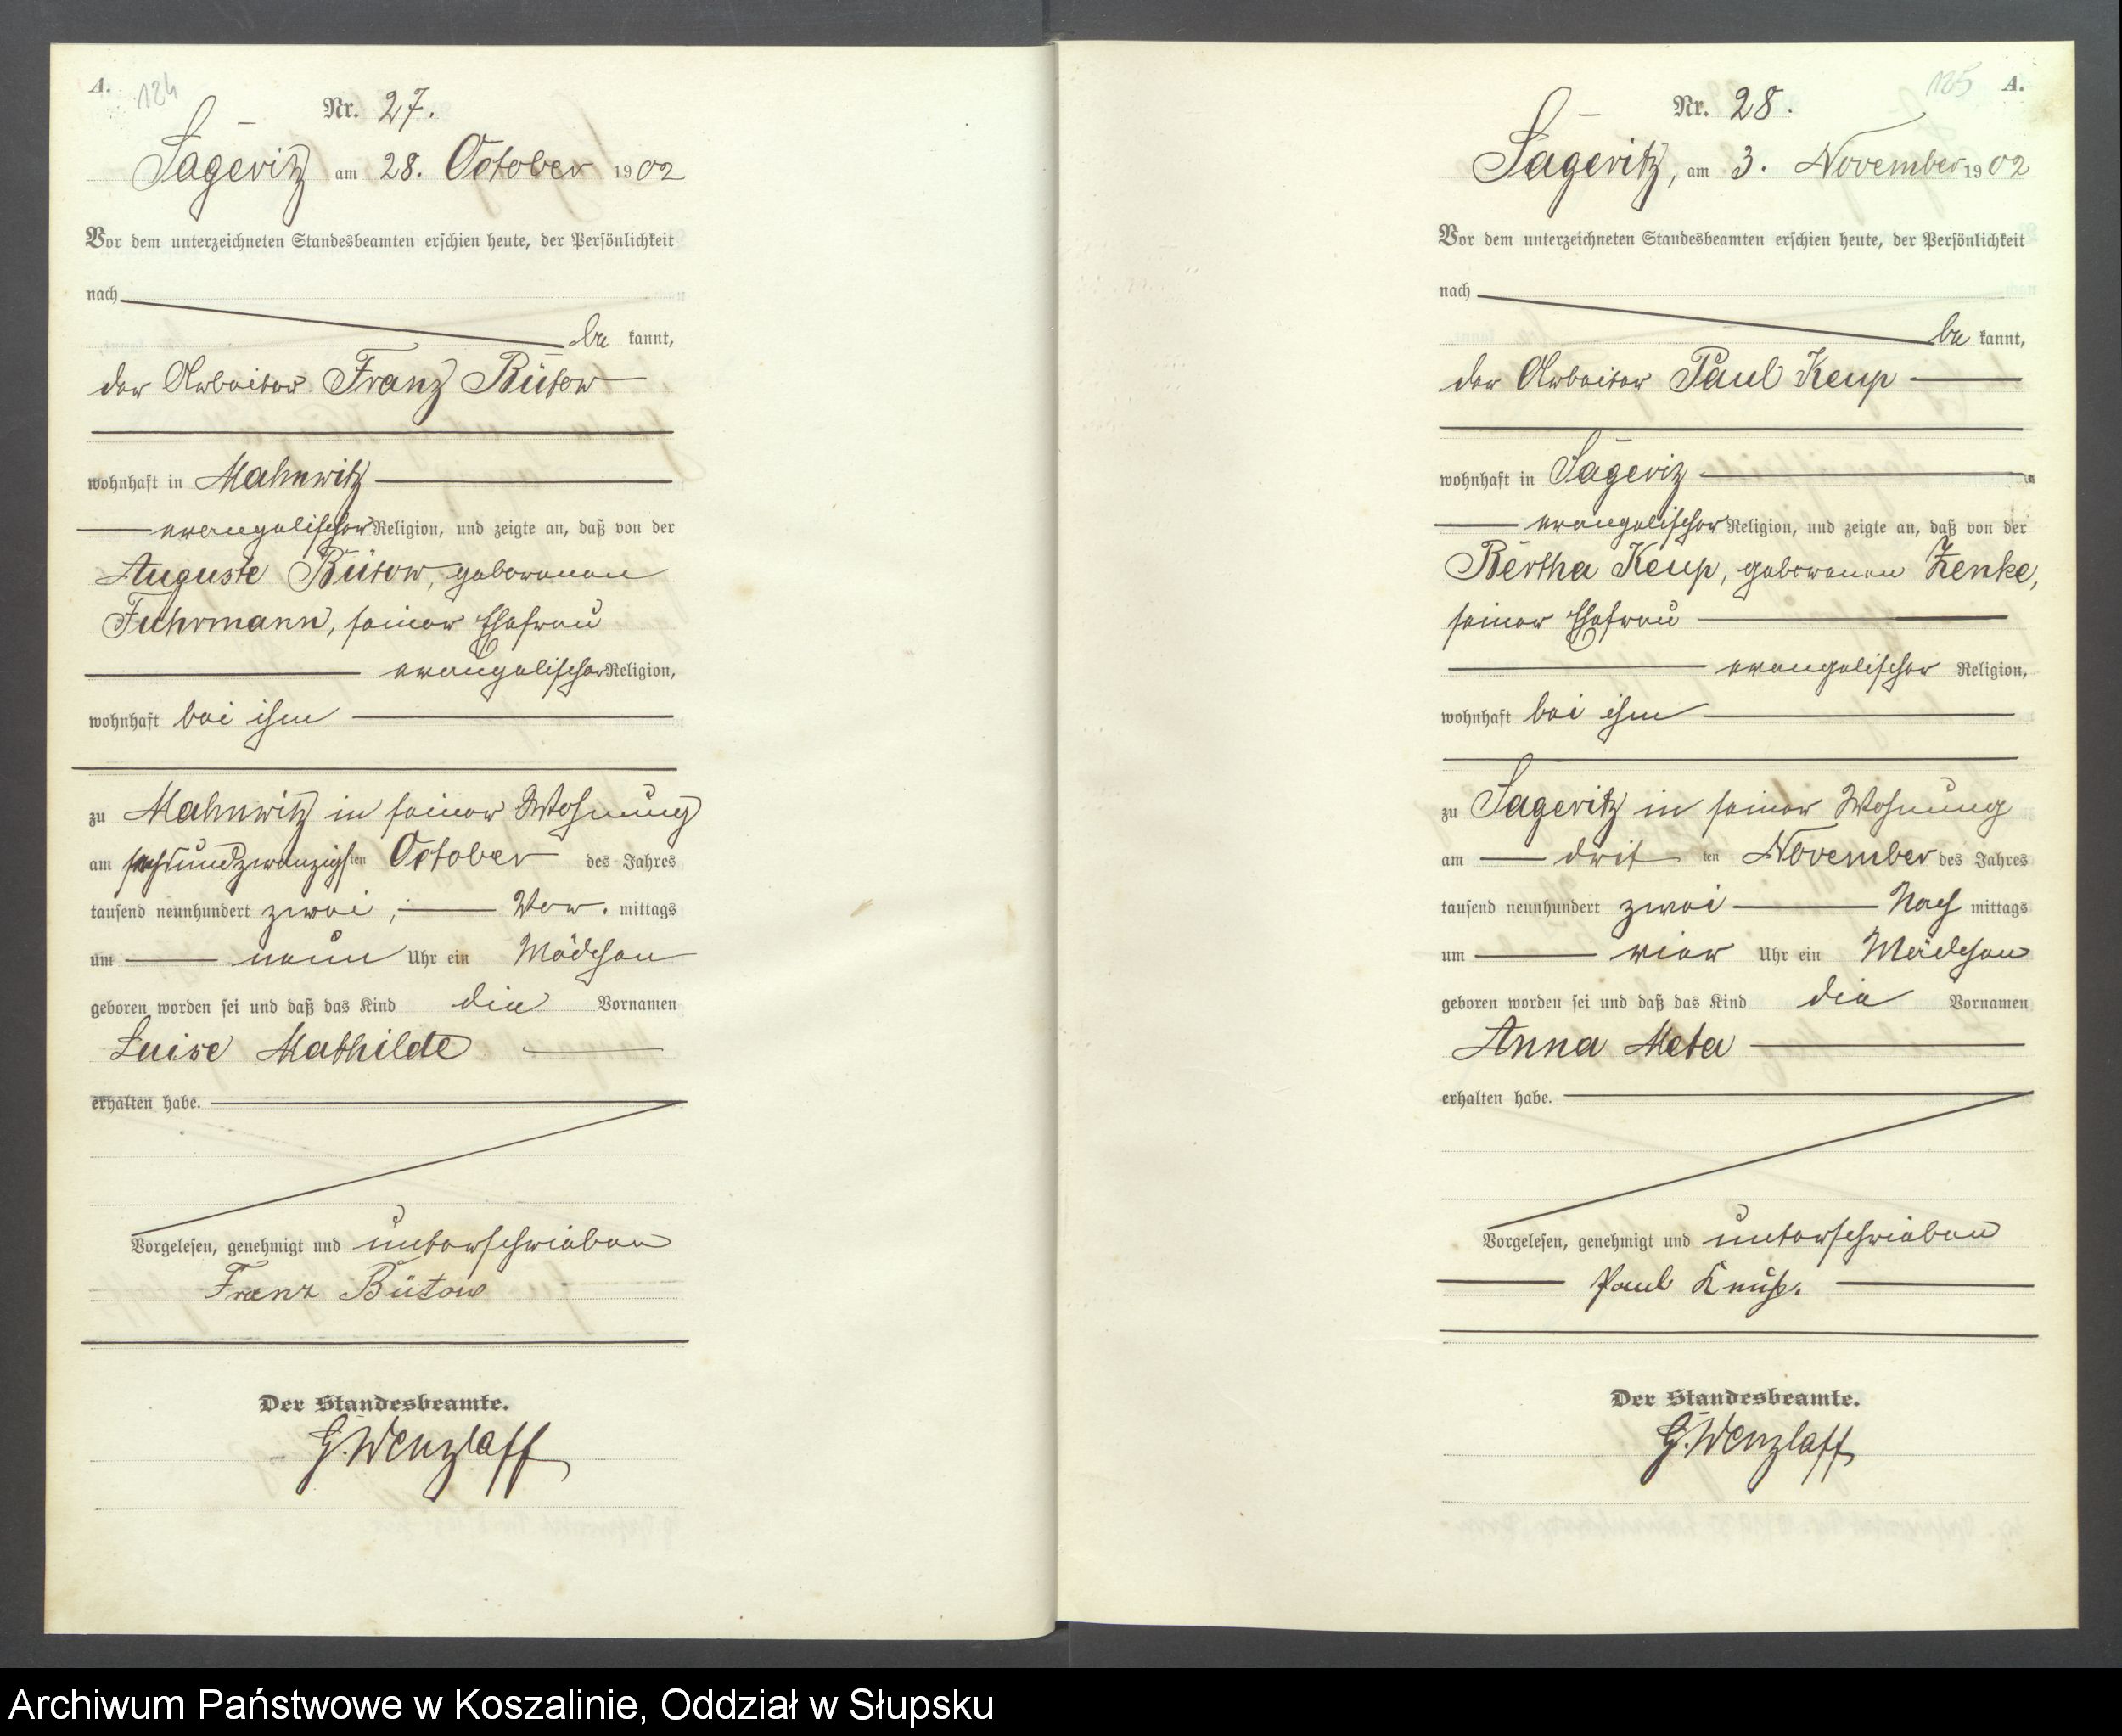 A. 124
Nr. 27.
Sageritz am 28. October 1902
Vor dem unterzeichneten Standesbeamten erschien heute, der Persönlichkeit
nach
be kannt,
der Arbeiter Franz Bütow
wohnhaft in Mahnwitz
evangelischer Religion, und zeigte an, daß von der
Auguste Bütow, geborenen
Fuhrmann, seiner Ehefrau
evangelischer Religion,
wohnhaft bei ihm
zu Mahnwitz in seiner Wohnung
am sechsundzwanzigsten October des Jahres
tausend neunhundert zwei, Vor. mittags
um neun Uhr ein Mädchen
geboren worden sei und daß das Kind die Vornamen
Luise Mathilde
erhalten habe.
Vorgelesen, genehmigt und unterschrieben
Franz Bütow
Der Standesbeamte.
G. Wenzlaff
125 A.
Nr. 28.
Sageritz, am 3. November 1902
Vor dem unterzeichneten Standesbeamten erschien heute, der Persönlichkeit
nach
be kannt,
der Arbeiter Paul Keup
wohnhaft in Sageriz
evangelischer Religion, und zeigte an, daß von der
Bertha Keup, geborenen Zenke,
seiner Ehefrau
evangelischer Religion,
wohnhaft bei ihm
zu Sageritz in seiner Wohnung
am dritten November des Jahres
tausend neunhundert zwei Nach mittags
um vier Uhr ein Mädchen
geboren worden sei und daß das Kind die Vornamen
Anna Meta
erhalten habe.
Vorgelesen, genehmigt und unterschrieben
Paul
Der Standesbeamte.
G. Wenzlaff
Archiwum Państwowe w Koszalinie, Oddział w Słupsku